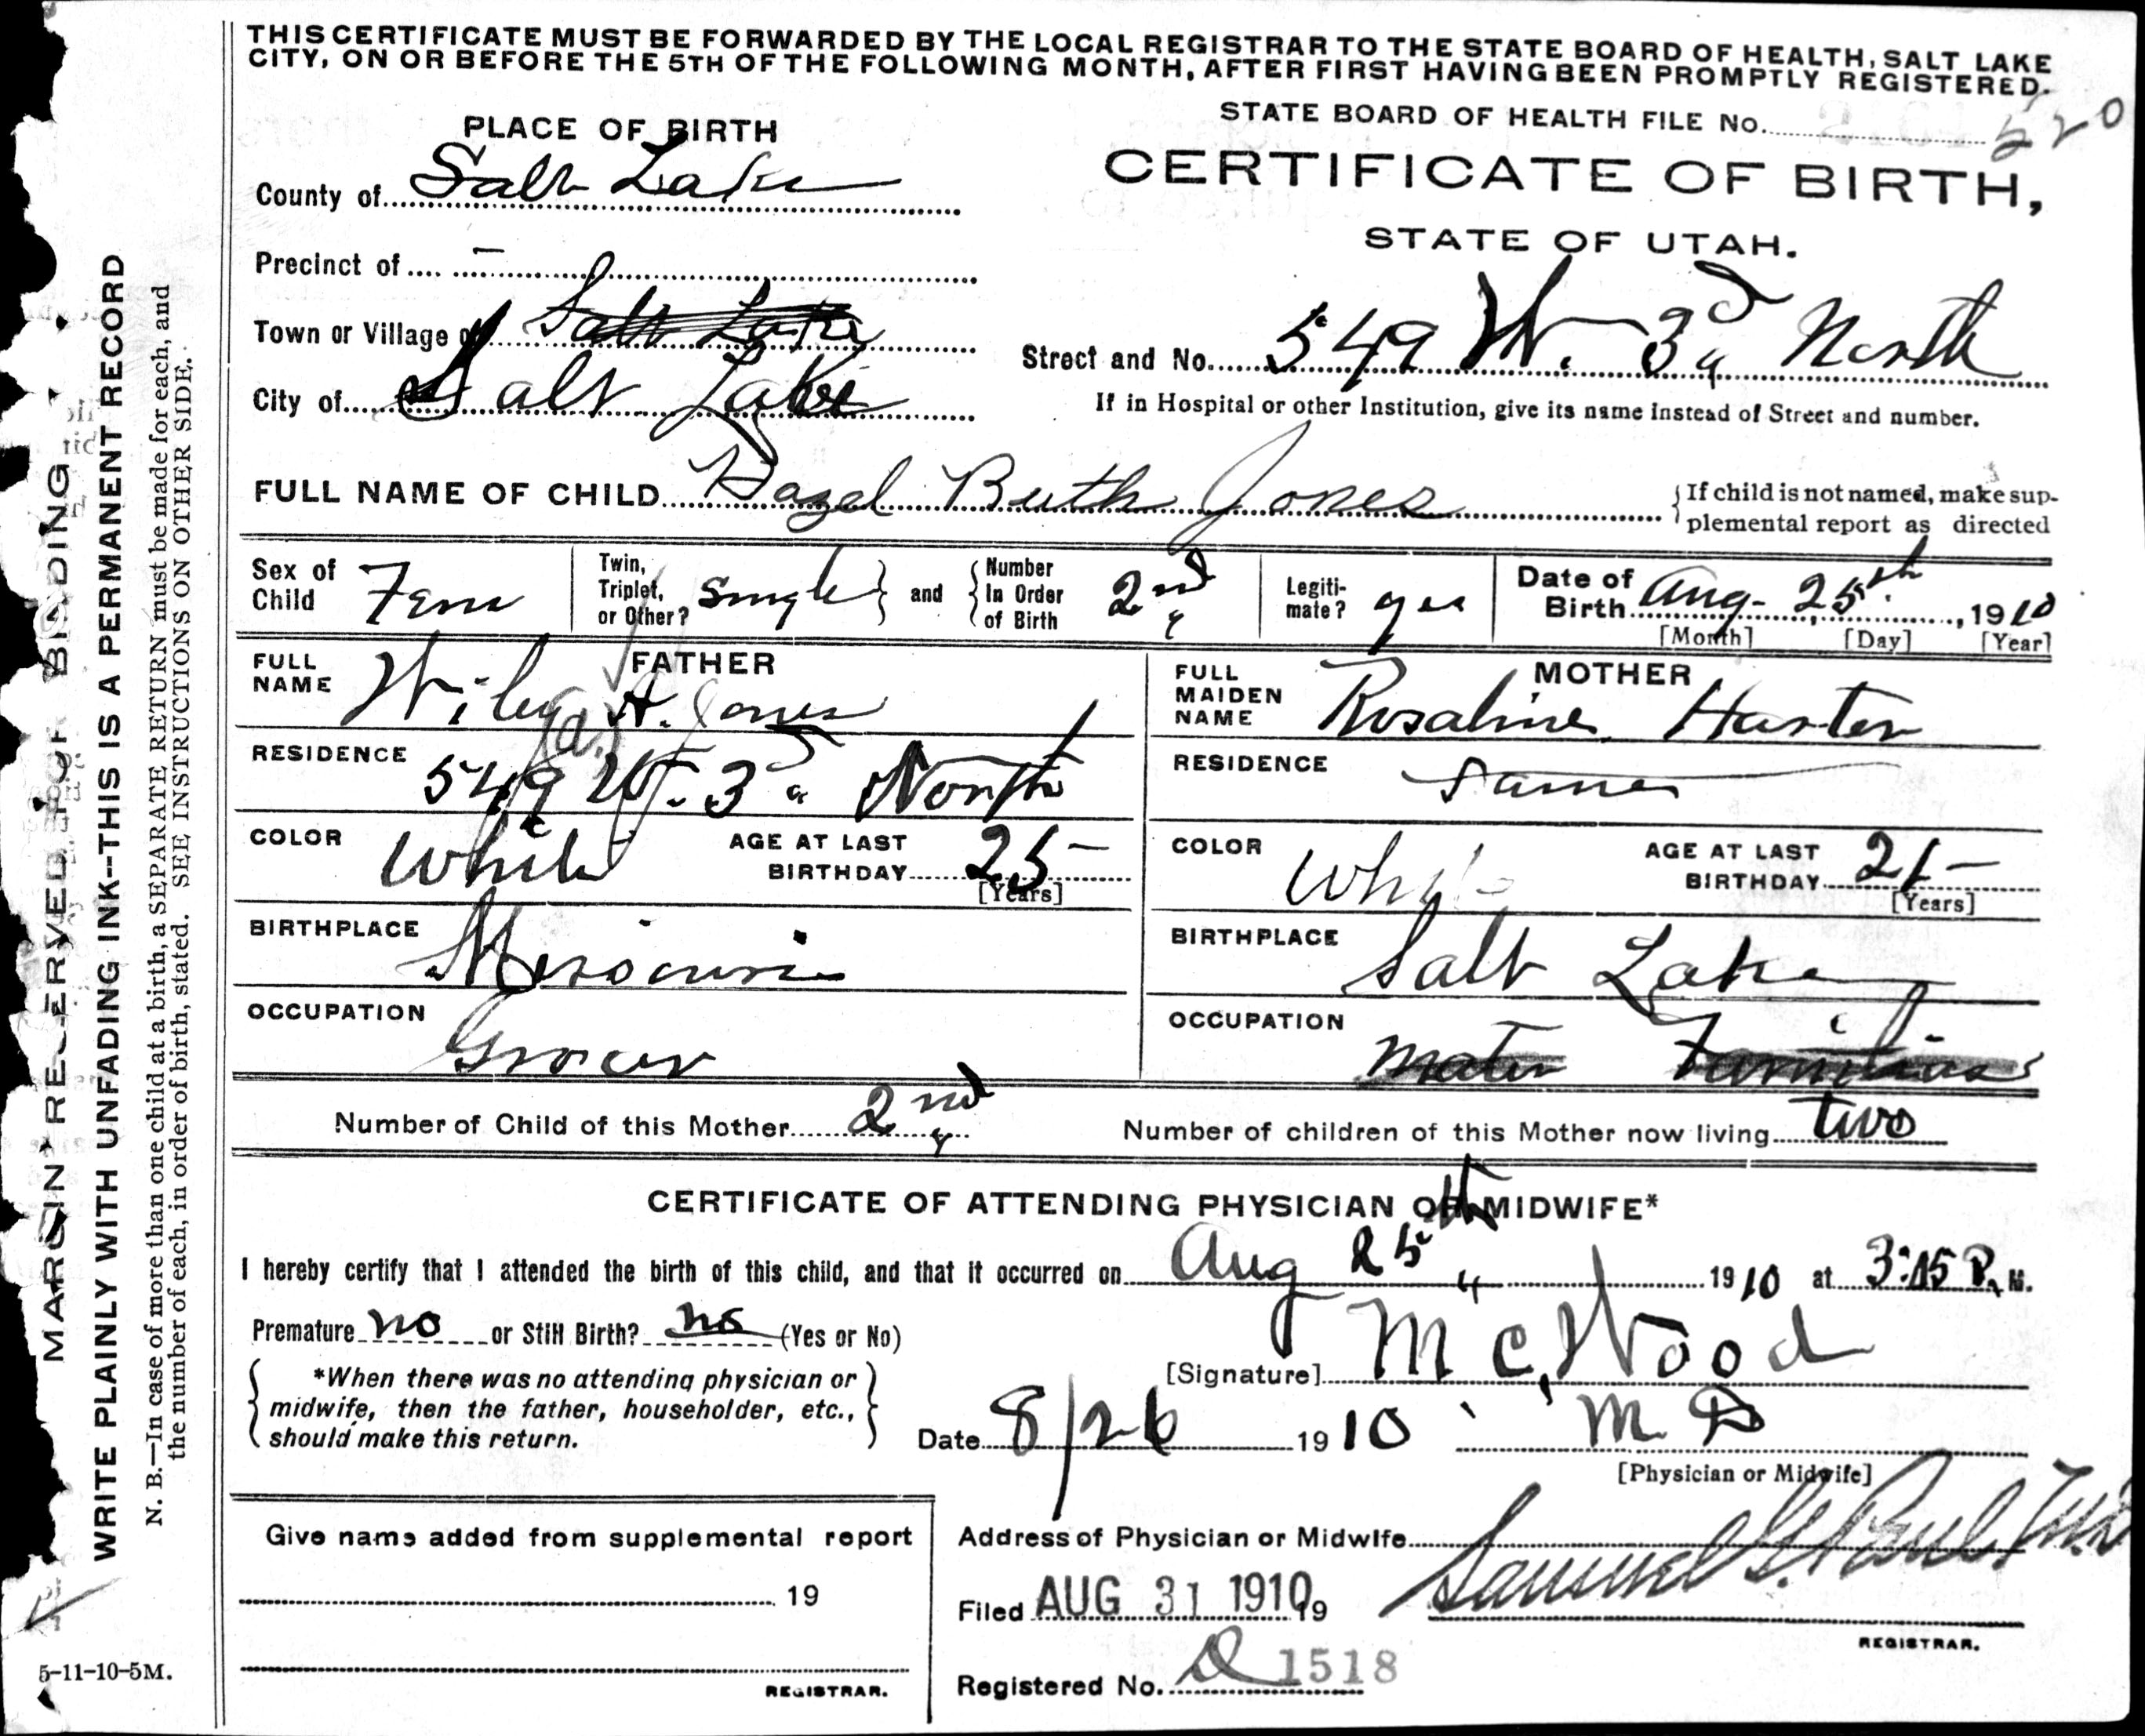 THIS CERTIFICATE MUST BE FORWARDED BY THE LOCAL REGISTRAR TO THE STATE BOARD OF HEALTH, SALT LAKE
CITY, ON OR BEFORE THE 5TH OF THE FOLLOWING MONTH, AFTER FIRST HAVING BEEN PROMPTLY REGISTERED.
STATE BOARD OF HEALTH FILE No. 520
PLACE OF BIRTH
CERTIFICATE OF BIRTH,
STATE OF UTAH.
County of Salt Lake
Precinct of —
Town or Village of Salt Lake
City of Salt Lake
Street and No. 549 W. 3d North
If in Hospital or other Institution, give its name instead of Street and number.
FULL NAME OF CHILD Hazel Ruth Jones
{If child is not named, make sup-
plemental report as directed
Sex of Child Fem
Twin, Triplet, or Other? single } and { Number In Order of Birth 2nd
Legiti-mate? yes
Date of Birth Aug- 25th, 1910
[Month] [Day] [Year]
FATHER
FULL NAME Wiley A. Jones
RESIDENCE 549 W. 3d North
COLOR White
AGE AT LAST BIRTHDAY 25-
[Years]
BIRTHPLACE Missouri
OCCUPATION Grocer
MOTHER
FULL MAIDEN NAME Rosaline Harter
RESIDENCE Same
COLOR White
AGE AT LAST BIRTHDAY 21-
[Years]
BIRTHPLACE Salt Lake
OCCUPATION Mater Familias
Number of Child of this Mother 2nd
Number of children of this Mother now living two
CERTIFICATE OF ATTENDING PHYSICIAN OR MIDWIFE*
I hereby certify that I attended the birth of this child, and that it occurred on Aug 25th 1910 at 3:15 P. M.
Premature no or Still Birth? no (Yes or No)
*When there was no attending physician or
midwife, then the father, householder, etc.,
should make this return.
[Signature] M C, Wood
Date 8/26 1910 M D
[Physician or Midwife]
Give name added from supplemental report
19
REGISTRAR.
Address of Physician or Midwife
Filed AUG 31 1910 19 Samuel G. Paul. M.D
REGISTRAR.
Registered No. 1518
MARGIN RESERVED FOR BINDING
WRITE PLAINLY WITH UNFADING INK--THIS IS A PERMANENT RECORD
N. B.—In case of more than one child at a birth, a SEPARATE RETURN must be made for each, and
the number of each, in order of birth, stated. SEE INSTRUCTIONS ON OTHER SIDE.
5-11-10-5M.